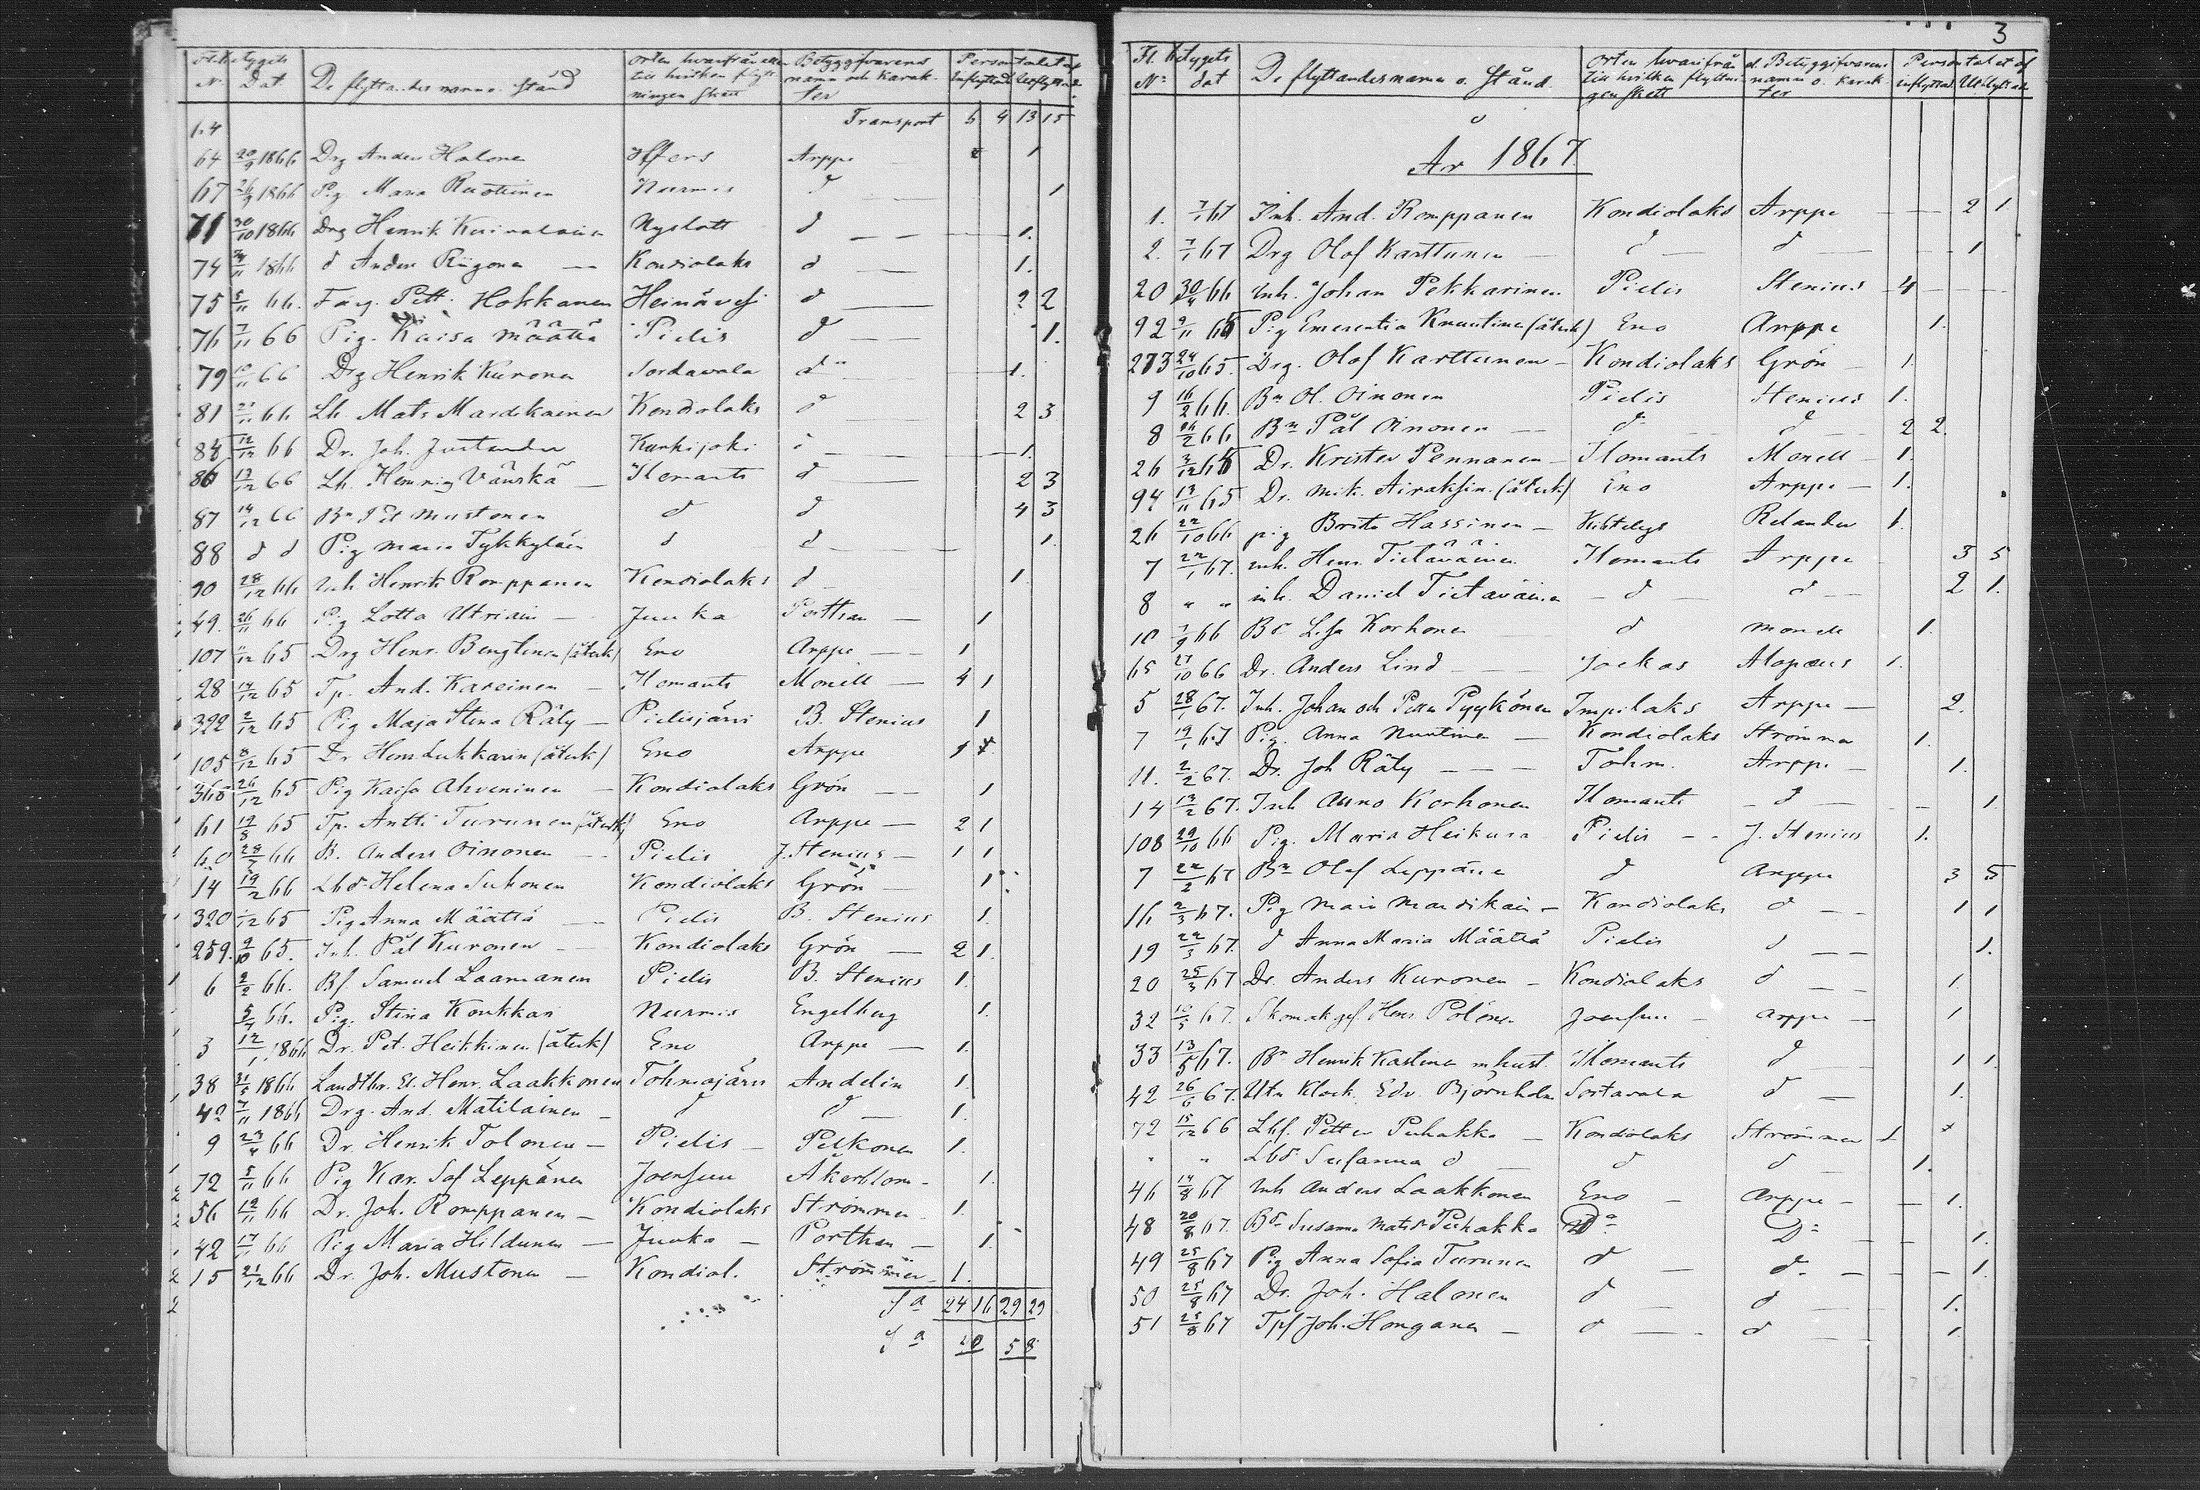 Betygets
N Dat De flyttandes namn o. stånd Orten hvarifrån eller till hvilken flyttningen skett Betyggifvarens namn och karakter Persontalet af Inflyttad Utflyttad
64 Transport 6 4 13 15
64 20/9 1866 Drg Anders Halonen Iffers Arppe 1
67 26/9 1866 Pig Maria Ruottinen Nurmis d 1
71 30/10 1866 Drg Henrik Kuivalain Nyslott d 1.
74 /11 1866 d Anders Riigonen Kondiolaks d 1.
75 5/11 66. Farg. Pett. Hokkanen Heinävesi d 2 2
76 7/11 66 Pig. Kaisa Määttä Pielis d 1.
79 /11 66 Drg Henrik Kuronen Sordavala d 1.
81 21/11 66 Lh Mats Mardikainen Kondiolaks d 2 3
84 12/12 66 Dr. Joh. Justander Kurkijoki d 1.
86 13/12 66 Lh. Henrig Vänskä Ilomants d 2 3
87 14/12 66 Bn Pet Mustonen d d 4 3
88 d d Pig Maria Tykkyläin d d 1.
90 28/12 66 Inh Henrik Romppanen Kondiolaks d 1.
49. 26/11 66 Pig Lotta Utriain Juuka Porthan 1
107 /12 65 Drg Henr. Bengtinen (återk) Eno Arppe 1
28 14/12 65 Tp. And. Kareinen Ilomants Monell 4 1
322 2/12 65 Pig Maja Stina Räty Pielisjärvi B. Stenius 1
105 8/12 65 Dr Henr Lukkarin (återk) Eno Arppe 1
368 26/12 65 Pig Kaisa Ahveninen Kondiolaks Grön 1
61 12/8 65 Tp. Antti Turunen (återk) Eno Arppe 2 1
60 28/7 66 B. Anders Oinonen Pielis J. Stenius 1 1
14 19/2 66 Lbdr Helena Suhonen Kondiolaks Grön 1
320 /12 65 Pig Anna Määttä Pielis B. Stenius 1.
259. 9/10 65. Inh. Pål Kuronen Kondiolaks Grön 2 1.
6 2/2 66. Bf Samuel Laamanen Pielis B. Stenius 1.
5/7 66. Pig. Stina Koukkari Nurmis Engelberg 1.
3 12/1 1866 Dr. Pet. Heikkinen (återk) Eno Arppe 1.
38 31/5 1866 Landthr. El. Henr. Laakkonen Tohmajärvi Andelin 1.
42 7/11 1866 Drg. And. Matilainen d d 1.
9 23/4 66 Dr. Henrik Tolonen Pielis Pelkonen 1.
72 5/11 66 Pig Kar. Sof Leppänen Joensuu Åkerblom 1.
56 12/11 66 Dr. Joh. Romppanen Kondiolaks Strömmer 1.
42 17/11 66 Pig Maria Hildunen Juuka Porthan 1.
15 21/12 66 Dr. Joh. Mustonen Kondiol. Strömmer 1.
Sa 24 16 29 29
Sa 40 58
3
Fl betygets
No dat De flyttandes namn o. stånd. Orten hvarifrån el. till hvilken flyttningen skett Betyggifvarens namn o. karakter Persontalet af inflyttad Utflyttad
År 1867.
1. 7/1 67 Inh. And. Romppanen Kondiolaks Arppe 2 1
2. 7/1 67 Drg Olof Karttunen d d 1
20 30/4 66 Inh. Johan Pekkarinen Pielis Stenius 4
92 9/11 65 Pig Emerentia Knuutinen (återk) Eno Arppe 1.
273 24/10 65. Drg. Olof Karttunen Kondiolaks Grön 1.
9 16/2 66. Bn H. Oinonen Pielis Stenius 1.
8 16/2 66 Bn Pål Oinonen d d 2 2.
26 3/12 65 Dr. Krister Pennanen Ilomants Monell 1.
94 13/11 65 Dr. Mik. Airaksin. (återk) Eno Arppe 1.
26 22/10 66 pig Brita Hassinen Kihtelys Relander 1.
7 22/1 67. Inh. Henr. Tietäväinen Ilomants Arppe 3 5
8 " " inh. Daniel Tietäväinen d d 2 1.
10 7/9 66 Bdr Lisa Korhonen d Monell 1.
65 27/10 66 Dr. Anders Lind Jockas Alopæus 1.
5 28/1 67. Inh. Johan och Petter Pyykönen Impilaks Arppe 2.
7 19/1 67 Pig. Anna Nuutinen Kondiolaks Strömmer 1.
11. 2/2 67. Dr. Joh Räty Tohm. Arppe 1.
14 13/2 67. Inh Auno Korhonen Ilomants d 1
108 29/10 66 Pig. Maria Heikura Pielis J. Stenius 1.
7 22/2 67 Bn Olof Leppänen d Arppe 3 5
16 2/3 67. Pig Maria Mardikain Kondiolaks d 1 1
19 22/3 67. d Anna Maria Määttä Pielis d 1.
20 25/3 67 Dr. Anders Kuronen Kondiolaks d 1.
32 10/5 67. Skomakgef Henr. Polonen Joensuu Arppe 1
33 13/5 67. Bn Henrik Kastinen m hust. Ilomants d 1 1.
42 26/6 67. Utn Klock. Edv Björnholm Sortavala d 1.
72 15/12 66 Lhf. Petter Puhakka Kondiolaks Strömmer 1
" " Lbdr Susanna d d d 1.
46 14/8 67 Inh Anders Laakkonen Eno Arppe 1.
48 20/8 67. Bdr Susanna Matsdr Puhakka Do Do 1.
49 25/8 67 Pig Anna Sofia Turunen d d 1.
50 25/8 67 Dr. Joh. Halonen d d 1.
51 25/8 67 Tpf Joh. Honganen d d 1.